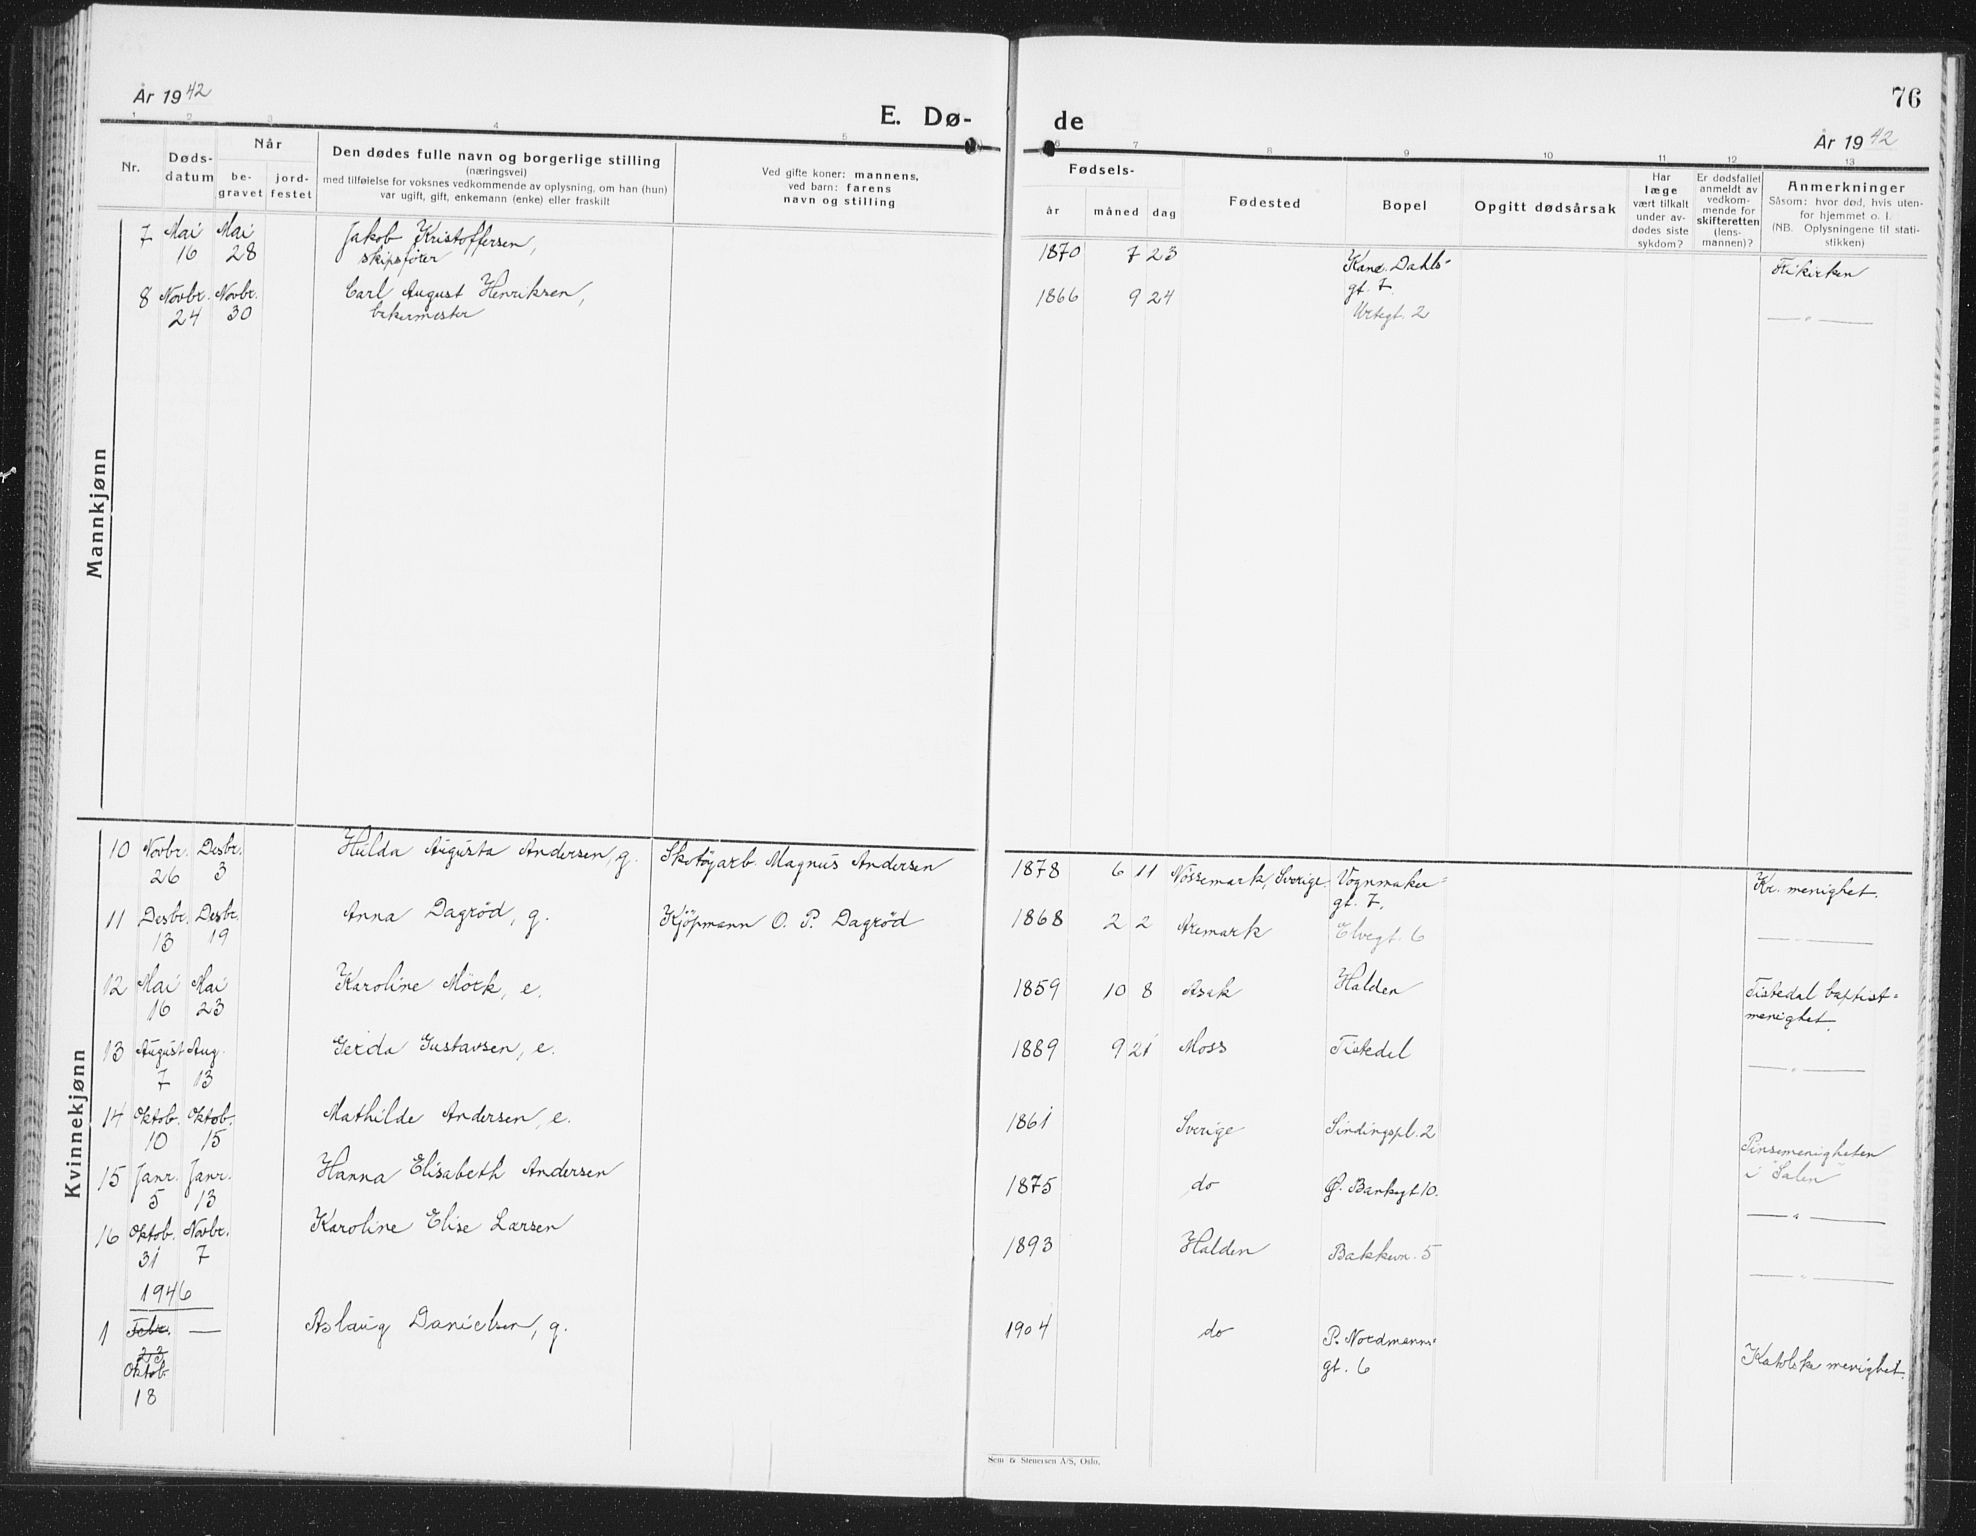 År 1942
E. Dø-
de
76
År 1942
1 2 3 4 5
6 7 8 9 10 11 12 13
Nr.
Døds-
datum
Når
be-
gravet
jord-
festet
Den dødes fulle navn og borgerlige stilling
(næringsvei)
med tilføielse for voksnes vedkommende av oplysning, om han (hun)
var ugift, gift, enkemann (enke) eller fraskilt
Ved gifte koner: mannens,
ved barn: farens
navn og stilling
Fødsels-
år måned dag
Fødested
Bopel
Opgitt dødsårsak
Har
læge
vært tilkalt
under av-
dødes siste
sykdom?
Er dødsfallet
anmeldt av
vedkom-
mende for
skifteretten
(lens-
mannen)?
Anmerkninger
Såsom: hvor død, hvis uten-
for hjemmet o. l.
(NB. Oplysningene til stati-
stikken)
Mannkjønn
7 Mai Mai Jakob Kristoffersen, 1870 7 23 Kand. Dahls- Frikirken
16 28 skipsfører gt. 7.
8 Novbr. Novbr. Carl August Henriksen, 1866 9 24 Urtegt. 2 — " —
24 30 bakermester
Kvinnekjønn
10 Novbr. Desbr. Hilda Augusta Andersen, g. Skotøyarb. Magnus Andersen 1878 6 11 Nössemark, Sverige. Vognmaker- Kr. menighet.
26 3 gt. 7.
11 Desbr. Desbr. Anna Dagrød, g. Kjøpmann O. P. Dagrød 1868 2 2 Aremark Elvegt. 6 — " —
13 19
12 Mai Mai Karoline Mörk, e. 1859 10 8 Asak Halden Tistedal baptist-
16 23 menighet.
13 August Aug. Gerda Gustavsen, e. 1889 9 21 Moss Tistedal — " —
7 13
14 Oktob. Oktob. Mathilde Andersen, e. 1861 Sverige Sindingspl. 2 Pinsemenigheten
10 15 i "Salen"
15 Janr. Janr. Hanna Elisabeth Andersen 1875 do Ø. Bankgt. 10. — " —
5 13
16 Oktob. Novbr. Karoline Elise Larsen 1893 Halden Bakkevn. 5 — " —
31 7
1946
1 Febr. — Aslaug Danielsen, g. 1904 do P. Nordmanns- Katolske menighet.
23 gt. 6
Oktob.
18
Sem & Stenersen A/S, Oslo.